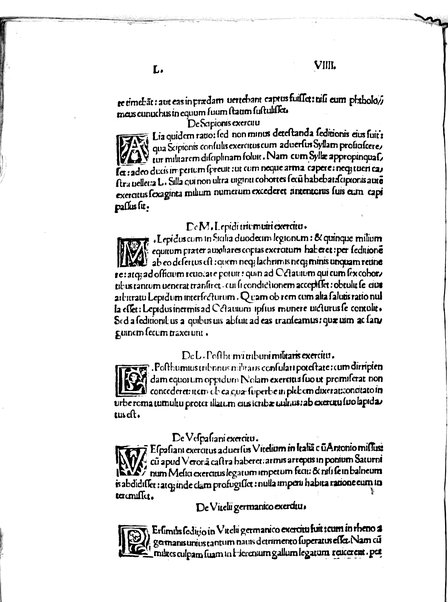 L. VIIII.
re timebāt: aut eas in prædam uertebant captus fuisset: nisi eum phībolo//
meus eunuchus in equum suum statim sustulisset.
De Scipionis exercitu
ALia quidem ratio: sed non minus detestanda seditionis eius fuit:
qua Scipionis consulis exercitus cum aduersus Syllam proficiscere/
tur militarem disciplinam soluit. Nam cum Syllæ appropinquas
set: adeo ducis imperium spreuit: ut cum neque arma capere: neq; tueri ca/
stra uellet: a L. Silla qui non ultra uiginti cohortes secū habebat: Scipionis autē
exercitus sexaginta milium numerum excederet in tentorio suis eum capi
passus sit.
De M. Lepidi triumuiri exercitu.
M. Lepidus cum in Sicilia duodecim legionum: & quinque milium
equitum præter auxiliares copias exercitum haberet: per seditionē
ab eo desertus est: quem neq; lachrimis neq; minis unquam retine
re: atq; ad officium reuocare potuit: quin ad Octauium qui cum sex cohor/
tibus tantum uenerat transiret: cuius conditionem accepisset: obtulit se eius
arbitratu Lepidum interfecturum. Quam ob rem cum alia salutis ratio nul
la esset: Lepidus inermis ad Octauium ipsius munere uicturus se contulit.
Sed a seditionibus a quibus uis absuit ad eas transeamus: quæ uim ac san/
guinem secum traxerunt.
De L. Posthumi tribuni militaris exercitu.
L. Posthumius tribunus militaris consulari potestate: cum diripien
dam equorum oppidum Nolam exercitui suo ut promiserat non
concederet: item ob ea quæ superbe in plebem dixerat: conotato in
urbe roma tumultu propter illatum eius icinbæ uulnus: ab exercitu suo lapida/
tus est.
De Vespasiani exercitu.
VEspasiani exercitus aduersus Vitelium in Italiā cū Antonio missus
cū apud Veronā castra haberet: armis arreptis in pontium Saturni
num Mesici exercitus legatum impetum fecit: & nisi se in balneum
is abdidisset: atq; inde clam profugisset: nulla imperii habita ratione eum in
teremisset.
De Vitelii germanico exercitu.
PErsimilis seditio in Vitelii germanico exercitu fuit: cum in rheno a
germanis unius tantum nauis detrimento superatus esset. Nam cū
milites culpam suam in Herennium gallum legatum reiicerent. per